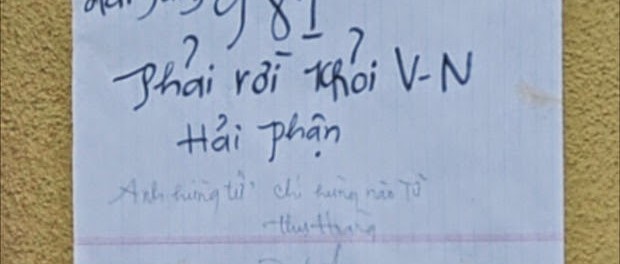 981
Phải rời khỏi V-N
Hải phận
Anh hùng tử, chí hùng nào tử